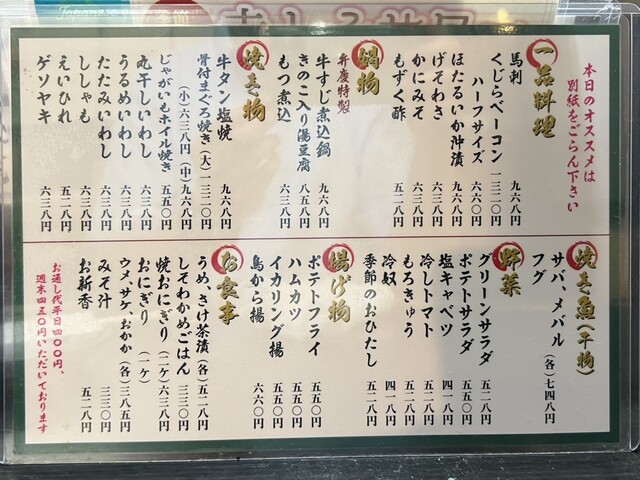 本日のオススメは
別紙をごらん下さい
一品料理
馬刺 九六八円
くじらベーコン 一三二〇円
ハーフサイズ 六六〇円
ほたるいか沖漬 九六八円
げそわさ 六三八円
かにみそ 六三八円
もずく酢 五二八円
鍋物
弁慶特製
牛すじ煮込鍋 九六八円
きのこ入り湯豆腐 八五八円
もつ煮込 六三八円
焼き物
牛タン塩焼 九六八円
骨付まぐろ焼き(大)一三二〇円
(小)六三八円(中)九六八円
じゃがいもホイル焼き 五五〇円
丸干しいわし 六三八円
うるめいわし 六三八円
たたみいわし 六三八円
ししゃも 六三八円
えいひれ 五二八円
ゲソヤキ 六三八円
焼き魚(干物)
サバ、メバル
フグ (各)七四八円
野菜
グリーンサラダ 五二八円
ポテトサラダ 五五〇円
塩キャベツ 四一八円
冷しトマト 五二八円
もろきゅう 五二八円
冷奴 四一八円
季節のおひたし 五二八円
揚げ物
ポテトフライ 五五〇円
ハムカツ 五五〇円
イカリング揚 五五〇円
鳥から揚 六六〇円
お食事
うめ、さけ茶漬(各)五二八円
しそわかめごはん 三三〇円
焼おにぎり(二ケ)六三八円
おにぎり(一ケ)
ウメ、サケ、おかか(各)三八五円
みそ汁 三三〇円
お新香 五二八円
お通し代平日四〇〇円、
週末四五〇円いただいております